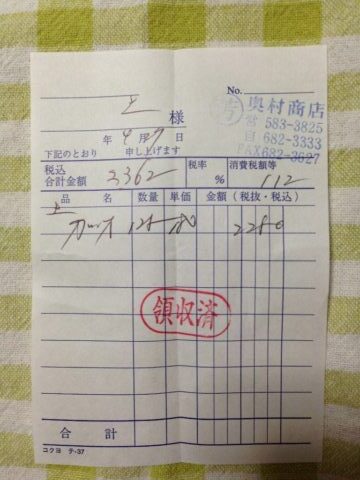 No.
上 様
奥村商店
☎ 583-3825
自 682-3333
FAX 682-3627
年 9月27日
下記のとおり 申し上げます
税込合計金額 2362 税率 % 消費税額等 112
品 名 数量 単価 金額(税抜・税込)
上
カツオ 125 180 2250
領収済
合 計
コクヨ テ-37